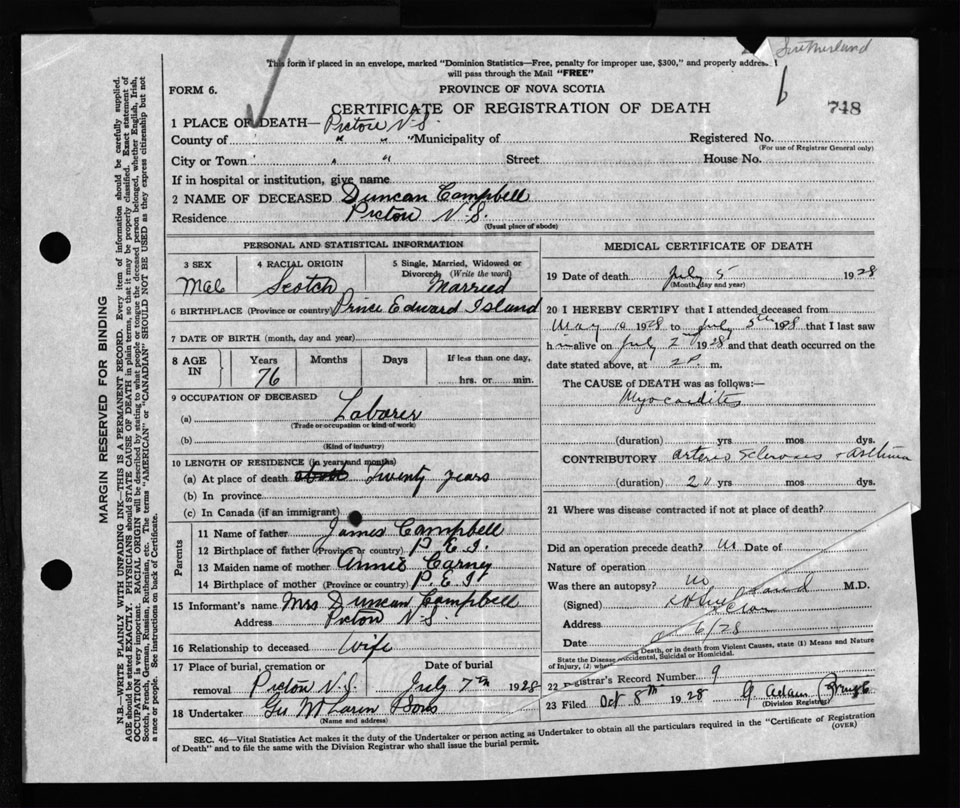 Sutherland
This form if placed in an envelope, marked "Dominion Statistics—Free, penalty for improper use, $300," and properly address
will pass through the Mail "FREE"
FORM 6.
PROVINCE OF NOVA SCOTIA
CERTIFICATE OF REGISTRATION OF DEATH
748
1 PLACE OF DEATH— Pictou N.S.
County of " " " Municipality of Registered No.
(For use of Registrar General only)
City or Town " " Street House No.
If in hospital or institution, give name
2 NAME OF DECEASED Duncan Campbell
Residence Pictou N.S.
(Usual place of abode)
PERSONAL AND STATISTICAL INFORMATION
3 SEX 4 RACIAL ORIGIN 5 Single, Married, Widowed or
Divorced (Write the word)
Male Scotch Married
6 BIRTHPLACE (Province or country) Prince Edward Island
7 DATE OF BIRTH (month, day and year)
8 AGE IN Years Months Days If less than one day,
76 hrs. or min.
9 OCCUPATION OF DECEASED
(a) Laborer
(Trade or occupation or kind of work)
(b)
(Kind of industry)
10 LENGTH OF RESIDENCE (in years and months)
(a) At place of death twenty years
(b) In province
(c) In Canada (if an immigrant)
Parents
11 Name of father James Campbell
12 Birthplace of father (Province or country) P.E.I.
13 Maiden name of mother Annie Carney
14 Birthplace of mother (Province or country) P.E.I
15 Informant's name Mrs Duncan Campbell
Address Pictou N.S.
16 Relationship to deceased Wife
17 Place of burial, cremation or Date of burial
removal Pictou N.S. July 7th 1928
18 Undertaker Geo McLaren Sons
(Name and address)
MEDICAL CERTIFICATE OF DEATH
19 Date of death July 5 1928
(Month, day and year)
20 I HEREBY CERTIFY that I attended deceased from
May 10 1928 to July 5th 1928 that I last saw
him alive on July 2nd 1928 and that death occurred on the
date stated above, at 2 P. m.
The CAUSE of DEATH was as follows:—
Myocarditis
(duration) yrs mos dys.
CONTRIBUTORY Arterio Sclerosis + asthma
(duration) 2 yrs mos dys.
21 Where was disease contracted if not at place of death?
Did an operation precede death? no Date of
Nature of operation
Was there an autopsy? no
(Signed) M.D.
Address
Date 6/28
Death, or in death from Violent Causes, state (1) Means and Nature
State the Disease
of Injury, (2) Accidental, Suicidal or Homicidal.
22 Registrar's Record Number 9
23 Filed Oct 8th 1928 G. Adam
(Division Registrar)
SEC. 46—Vital Statistics Act makes it the duty of the Undertaker or person acting as Undertaker to obtain all the particulars required in the "Certificate of Registration
of Death" and to file the same with the Division Registrar who shall issue the burial permit.
(OVER)
MARGIN RESERVED FOR BINDING
N.B.—WRITE PLAINLY WITH UNFADING INK—THIS IS A PERMANENT RECORD. Every item of information should be carefully supplied.
AGE should be stated EXACTLY. PHYSICIANS should STATE CAUSE OF DEATH in plain terms, so that it may be properly classified. Exact statement of
OCCUPATION is very important. RACIAL ORIGIN will be described by stating to what people or tongue the deceased person belonged, whether English, Irish,
Scotch, French, German, Russian, Ruthenian, etc. The terms "AMERICAN" or "CANADIAN" SHOULD NOT BE USED as they express citizenship but not
a race or people. See instructions on back of Certificate.